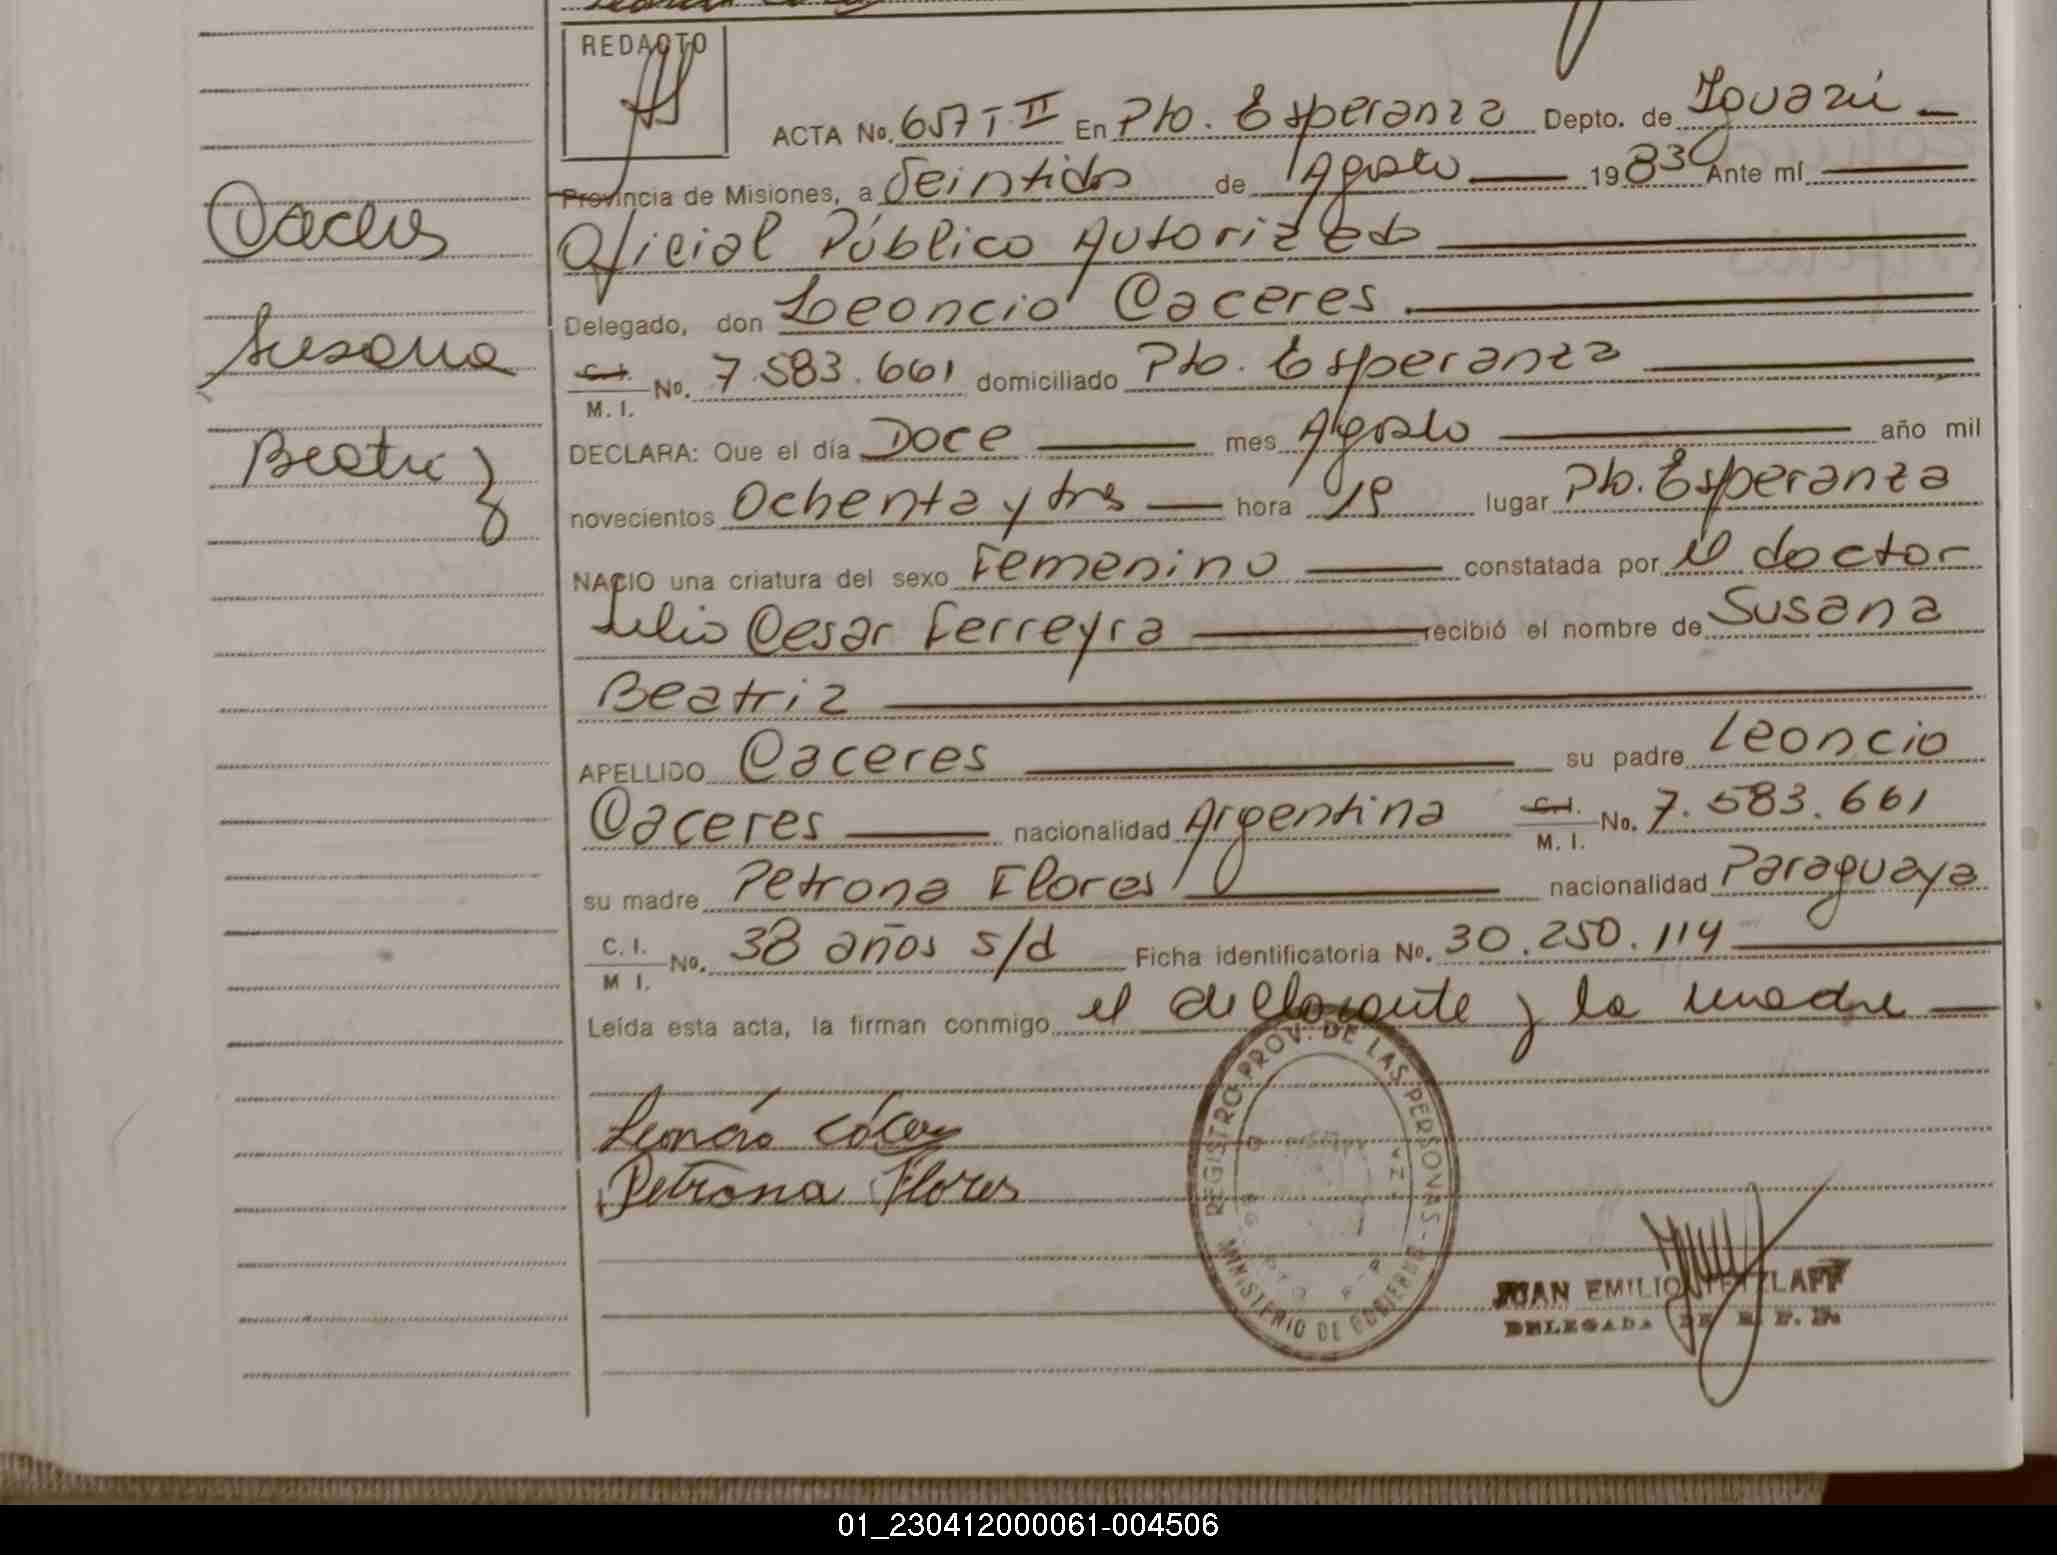 REDACTO
ACTA No. 657 T. II En Pto. Esperanza Depto. de Iguazú
Provincia de Misiones, a Veintidos de Agosto 1983 Ante mí
Oficial Público Autorizado
Delegado, don Leoncio Caceres
C. I. M. I. No. 7.583.661 domiciliado Pto. Esperanza
DECLARA: Que el día Doce mes Agosto año mil
novecientos Ochenta y tres hora 19 lugar Pto. Esperanza
NACIO una criatura del sexo Femenino constatada por el doctor
Julio Cesar Ferreyra recibió el nombre de Susana
Beatriz
APELLIDO Caceres su padre Leoncio
Caceres nacionalidad Argentina C. I. M. I. No. 7.583.661
su madre Petrona Flores nacionalidad Paraguaya
C. I. M I. No. 38 años s/d Ficha identificatoria No. 30.250.114
Leída esta acta, la firman conmigo el declarante y la madre
Leoncio
Petrona Flores
Caceres
Susana
Beatriz
REGISTRO PROV. DE LAS PERSONAS - MINISTERIO DE GOBIERNO
JUAN EMILIO
DELEGADA DE R. P. P.
01_230412000061-004506